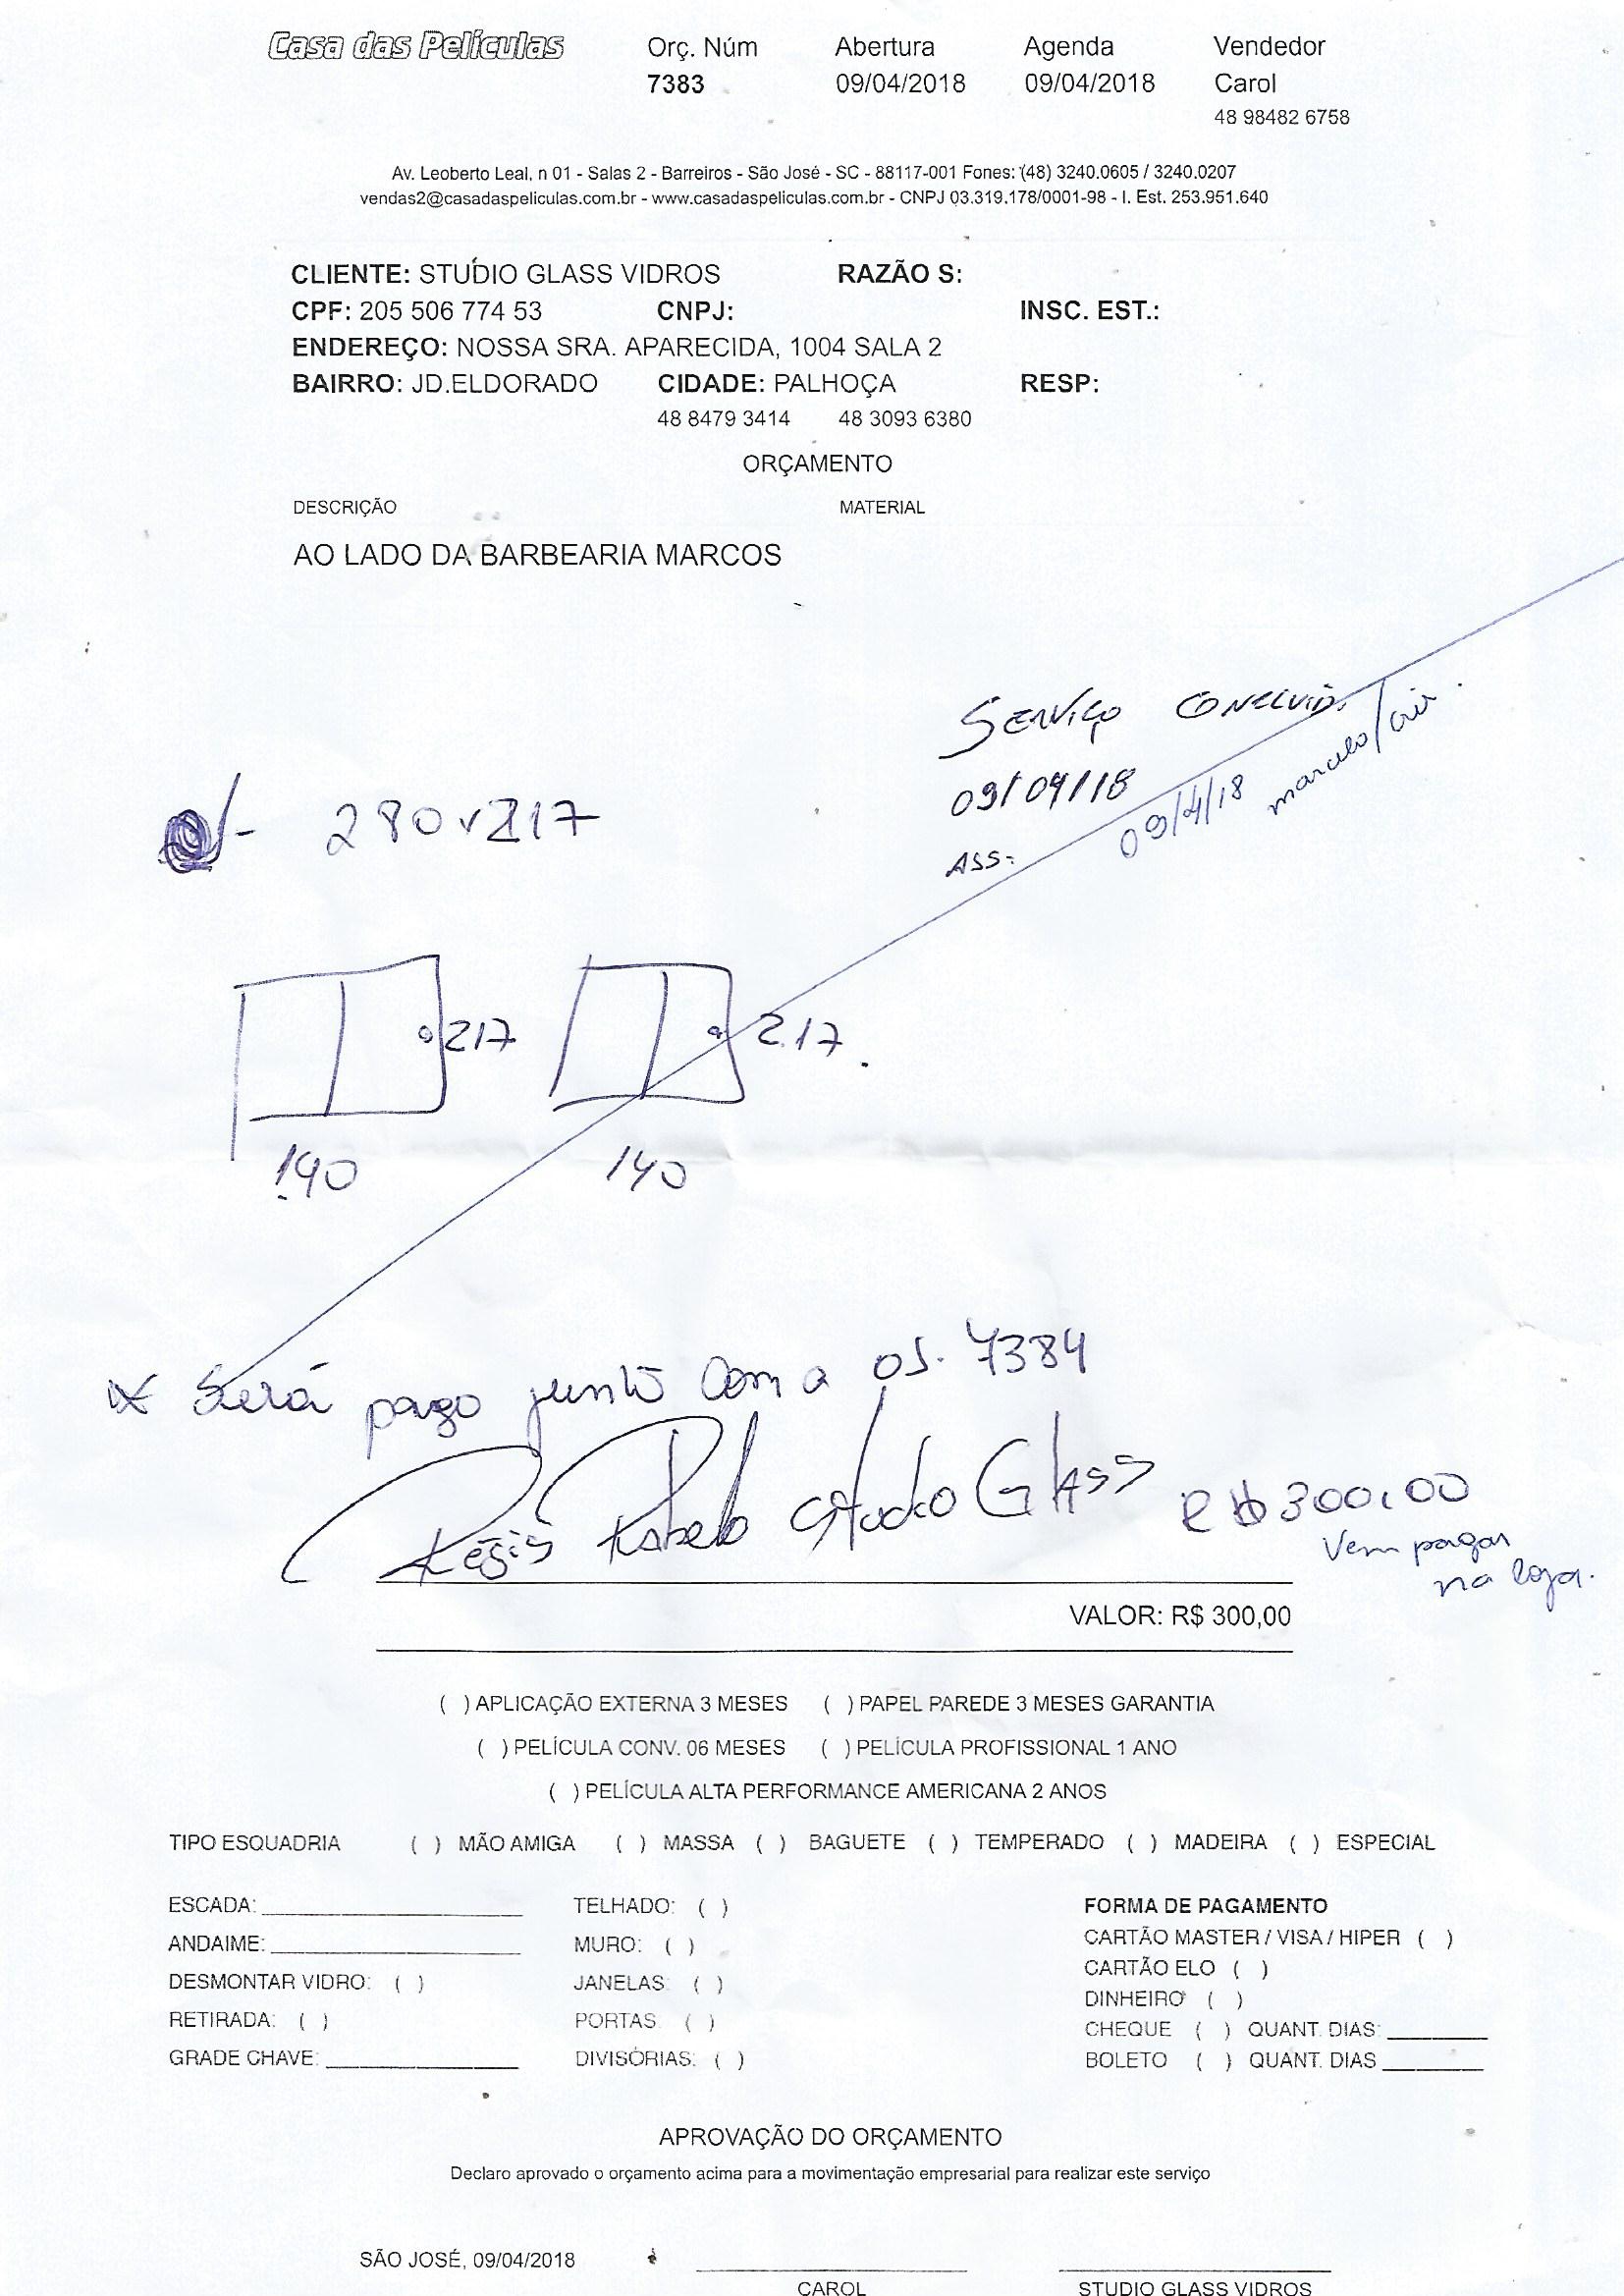 Casa das Películas
Orç. Núm Abertura Agenda Vendedor
7383 09/04/2018 09/04/2018 Carol
48 98482 6758
Av. Leoberto Leal, n 01 - Salas 2 - Barreiros - São José - SC - 88117-001 Fones: (48) 3240.0605 / 3240.0207
vendas2@casadaspeliculas.com.br - www.casadaspeliculas.com.br - CNPJ 03.319.178/0001-98 - I. Est. 253.951.640
CLIENTE: STUDIO GLASS VIDROS RAZÃO S:
CPF: 205 506 774 53 CNPJ: INSC. EST.:
ENDEREÇO: NOSSA SRA. APARECIDA, 1004 SALA 2
BAIRRO: JD.ELDORADO CIDADE: PALHOÇA RESP:
48 8479 3414 48 3093 6380
ORÇAMENTO
DESCRIÇÃO MATERIAL
AO LADO DA BARBEARIA MARCOS
SERVIÇO CONCLUÍDO
09/04/18
ASS:
09/4/18 marcelo/
280 x 217
217 217
140 140
Será pago junto com a OS. 7384
Régis Rabelo Studio Glass
R$ 300,00
Vem pagar
na loja.
VALOR: R$ 300,00
( ) APLICAÇÃO EXTERNA 3 MESES ( ) PAPEL PAREDE 3 MESES GARANTIA
( ) PELÍCULA CONV. 06 MESES ( ) PELÍCULA PROFISSIONAL 1 ANO
( ) PELÍCULA ALTA PERFORMANCE AMERICANA 2 ANOS
TIPO ESQUADRIA ( ) MÃO AMIGA ( ) MASSA ( ) BAGUETE ( ) TEMPERADO ( ) MADEIRA ( ) ESPECIAL
ESCADA: TELHADO: ( ) FORMA DE PAGAMENTO
ANDAIME: MURO: ( ) CARTÃO MASTER / VISA / HIPER ( )
DESMONTAR VIDRO: ( ) JANELAS: ( ) CARTÃO ELO ( )
RETIRADA: ( ) PORTAS: ( ) DINHEIRO ( )
GRADE CHAVE: DIVISÓRIAS: ( ) CHEQUE ( ) QUANT. DIAS:
BOLETO ( ) QUANT. DIAS
APROVAÇÃO DO ORÇAMENTO
Declaro aprovado o orçamento acima para a movimentação empresarial para realizar este serviço
SÃO JOSÉ, 09/04/2018
CAROL STUDIO GLASS VIDROS